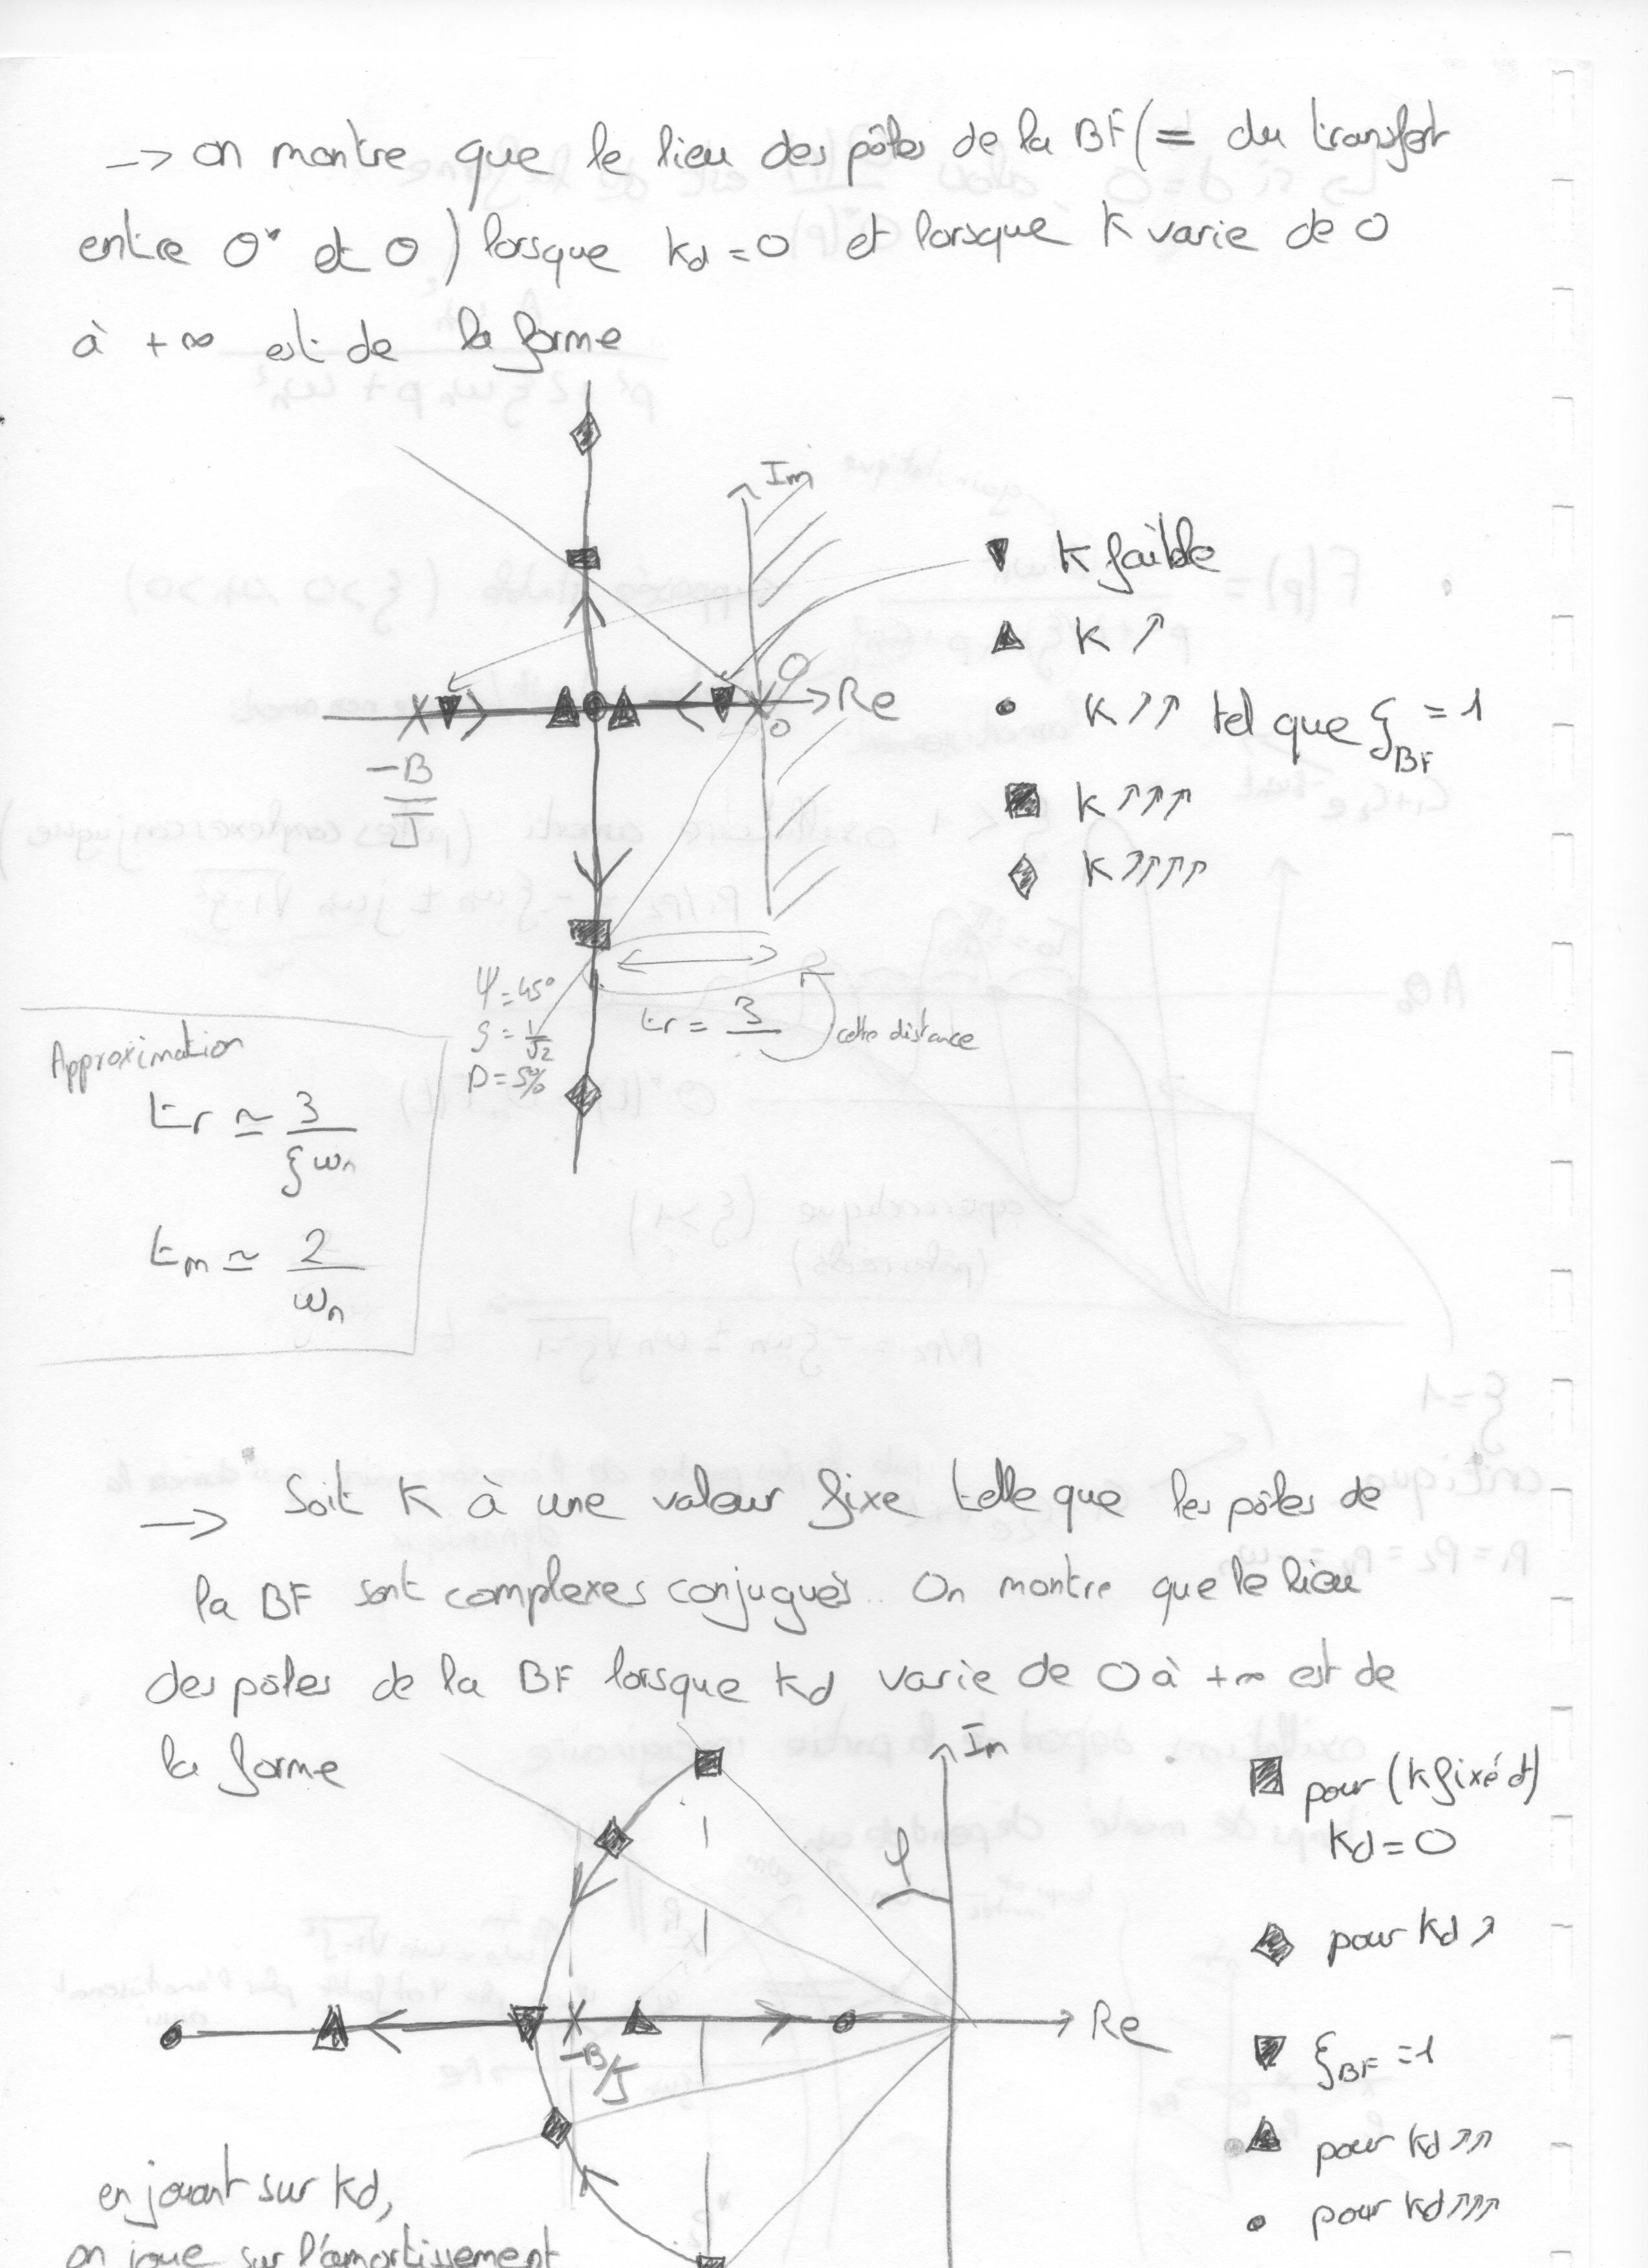 → on montre que le lieu des pôles de la BF (= du transfert
entre θ* et θ) lorsque kd = 0 et lorsque K varie de 0
à +∞ est de la forme
Im
K faible
K ↗
0
Re
0
K ↗↗ tel que ξBF = 1
-B
J
K ↗↗↗
K ↗↗↗↗
Ψ = 45°
ξ = 1/√2
D = 5%
tr = 3
cette distance
Approximation
tr ≃ 3/(ξ ωn)
tm ≃ 2/ωn
→ Soit K à une valeur fixe telle que les pôles de
la BF sont complexes conjugués. On montre que le lieu
des pôles de la BF lorsque kd varie de 0 à +∞ est de
la forme
Im
pour (K fixé et)
kd = 0
φ
pour kd ↗
Re
-B/J
ξBF = 1
pour kd ↗↗
pour kd ↗↗↗
en jouant sur kd,
on joue sur l'amortissement